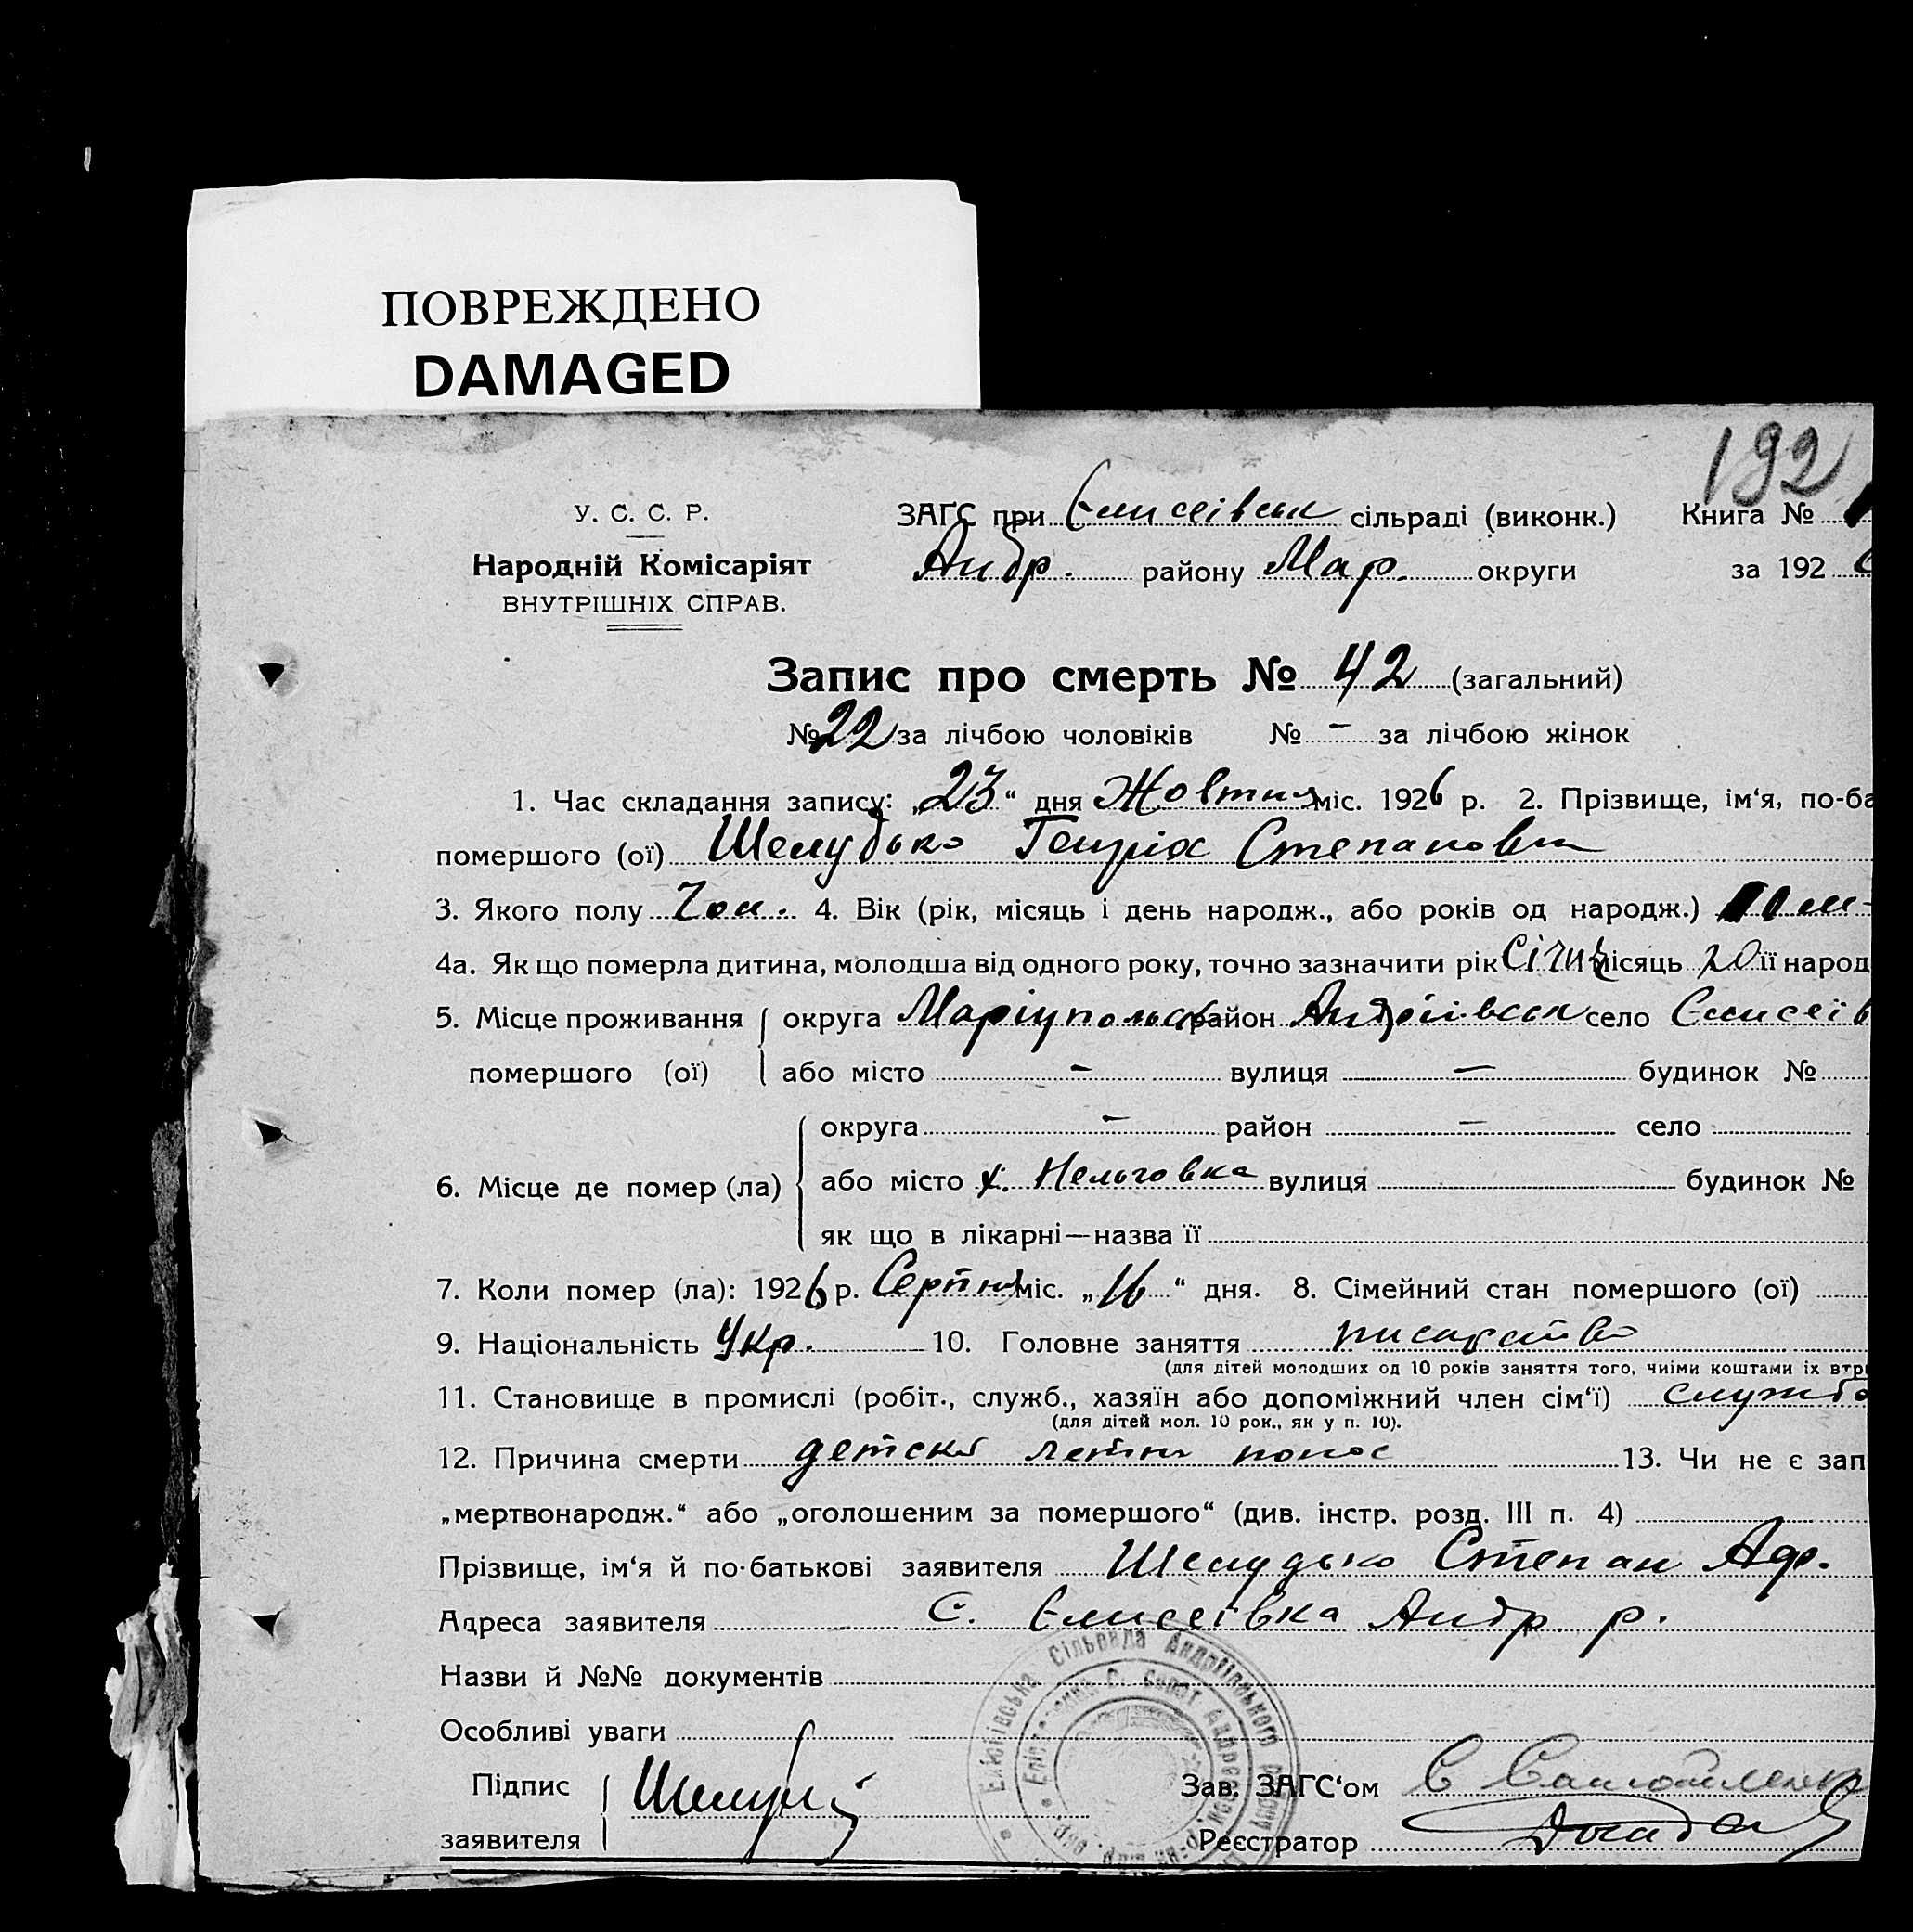 ПОВРЕЖДЕНО
DAMAGED
192
У. С. С. Р.
Народній Комісаріят
ВНУТРІШНІХ СПРАВ.
ЗАГС при Єлисеівськ сільраді (виконк.) Книга №
Андр. району Мар. округи за 192
Запис про смерть № 42 (загальний)
№ 22 за лічбою чоловіків № — за лічбою жінок
1. Час складання запису: „23“ дня Жовтня міс. 1926 р. 2. Прізвище, ім‘я, по-ба
помершого (ої) Шелудько Генріх Степанович
3. Якого полу Чол. 4. Вік (рік, місяць і день народж., або років од народж.)
4а. Як що померла дитина, молодша від одного року, точно зазначити рік Січня місяць 20 її народ
5. Місце проживання округа Маріупольськ район Андріівськ село Єлисеїв
помершого (ої) або місто — вулиця — будинок №
округа — район — село
6. Місце де помер (ла) або місто х. Нельговка вулиця будинок №
як що в лікарні—назва її
7. Коли помер (ла): 1926 р. Серпня міс. „16“ дня. 8. Сімейний стан помершого (ої)
9. Національність Укр. 10. Головне заняття писарство
(для дітей молодших од 10 років заняття того, чиїми коштами їх втри
11. Становище в промислі (робіт., служб., хазяїн або допоміжний член сім‘ї) служб
(для дітей мол. 10 рок., як у п. 10).
12. Причина смерти детскі летни понос 13. Чи не є зап
„мертвонародж.“ або „оголошеним за помершого“ (див. інстр. розд. III п. 4)
Прізвище, ім‘я й по-батькові заявителя Шелудько Степан Аф.
Адреса заявителя с. Єлисеівка Андр. р.
Назви й №№ документів
Особливі уваги
Підпис
заявителя
Зав. ЗАГС‘ом
Реєстратор